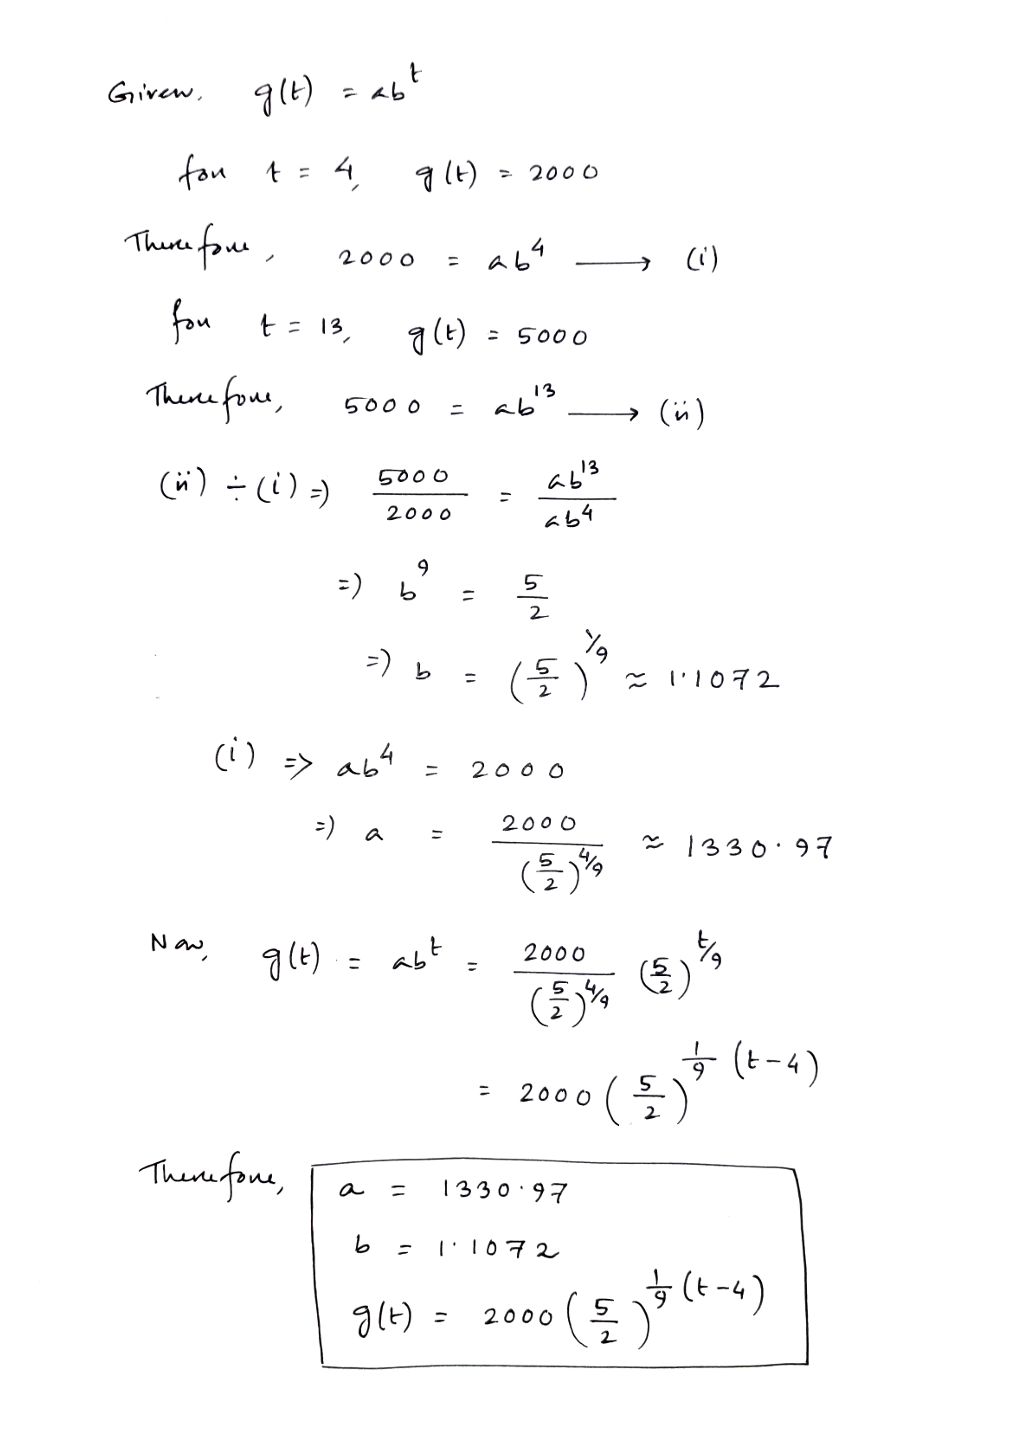 Given, g(t) = ab^t
for t = 4, g(t) = 2000
Therefore, 2000 = ab^4 ⟶ (i)
for t = 13, g(t) = 5000
Therefore, 5000 = ab^13 ⟶ (ii)
(ii) ÷ (i) => 5000/2000 = ab^13/ab^4
=> b^9 = 5/2
=> b = (5/2)^1/9 ≈ 1.1072
(i) => ab^4 = 2000
=> a = 2000/(5/2)^4/9 ≈ 1330.97
Now, g(t) = ab^t = 2000/(5/2)^4/9 (5/2)^t/9
= 2000 (5/2)^1/9 (t-4)
Therefore, a = 1330.97
b = 1.1072
g(t) = 2000 (5/2)^1/9 (t-4)